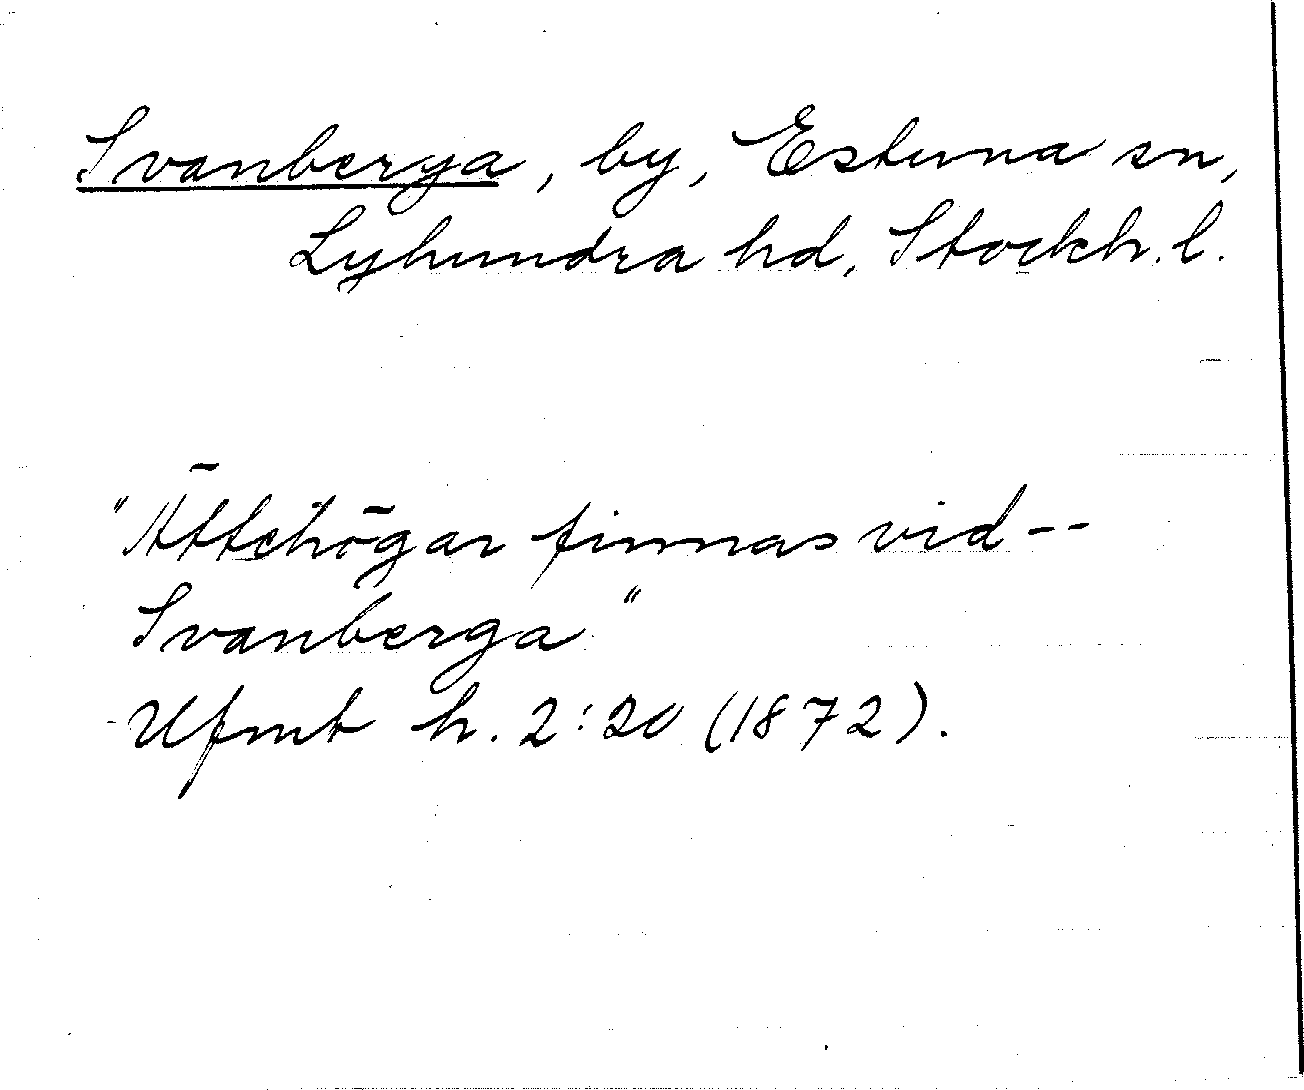 Svanberga, by, Estuna sn,
Lyhundra hd, Stockh. l.
"Ättehögar finnas vid --
Svanberga"
Ufmt h. 2:20 (1872).